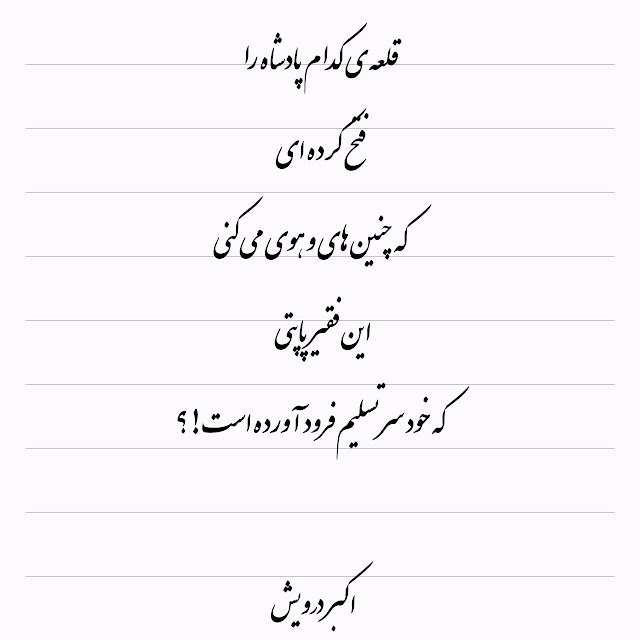 قلعه‌ی کدام پادشاه را
فتح کرده ای
که چنین های و هوی می کنی
این فقیر پاپتی
که خود سر تسلیم فرود آورده است!؟
اکبر درویش